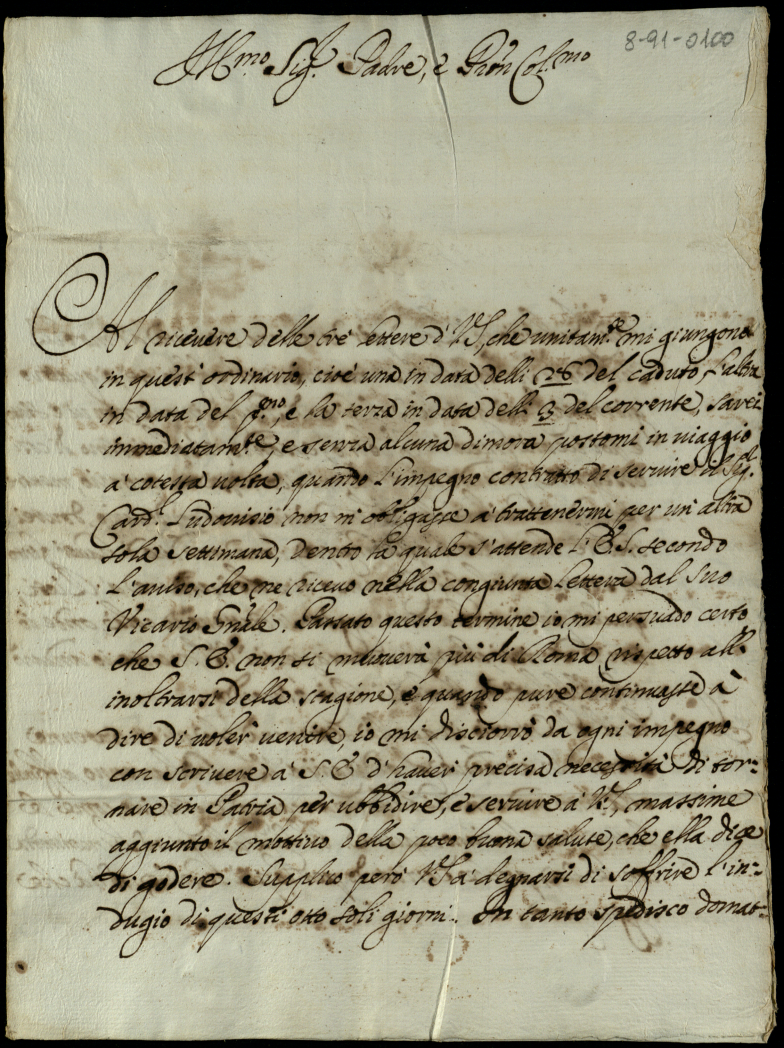 8-91-0100
Ill.mo Sig.r Padre, e Pron Col.mo
Al ricevere delle tre lettere di VS, che unitam.te mi giungono
in quest'ordinario, cioè una in data delli 26 del caduto, l'altra
in data del p.mo, e la terza in data delli 3 del corrente, sarei
immediatam.te, e senza alcuna dimora postomi in viaggio
à cotesta volta, quando l'impegno contratto di servire il Sig.r
Card.l Ludovisio non m'obligasse à trattenermi per un'altra
sola settimana, dentro la quale s'attende l'E.S. secondo
l'aviso, che ne ricevo nella congiunta lettera dal suo
Vicario Gnãle. Passato questo termine io mi persuado certo
che S.E. non si muoverà più di Roma rispetto all'
inoltrarsi della stagione, e quando pure continuasse à
dire di voler venire, io mi disciorrò da ogni impegno
con scrivere à S.E. d'haver precisa necessità di tor=
nare in Patria per ubbidire, e servire à VS, massime
aggiunto il mottivo della poco buona salute, che ella dice
di godere. Supplico però VS à degnarsi di soffrire l'in=
dugio di questi otto soli giorni. In tanto spedisco domat=